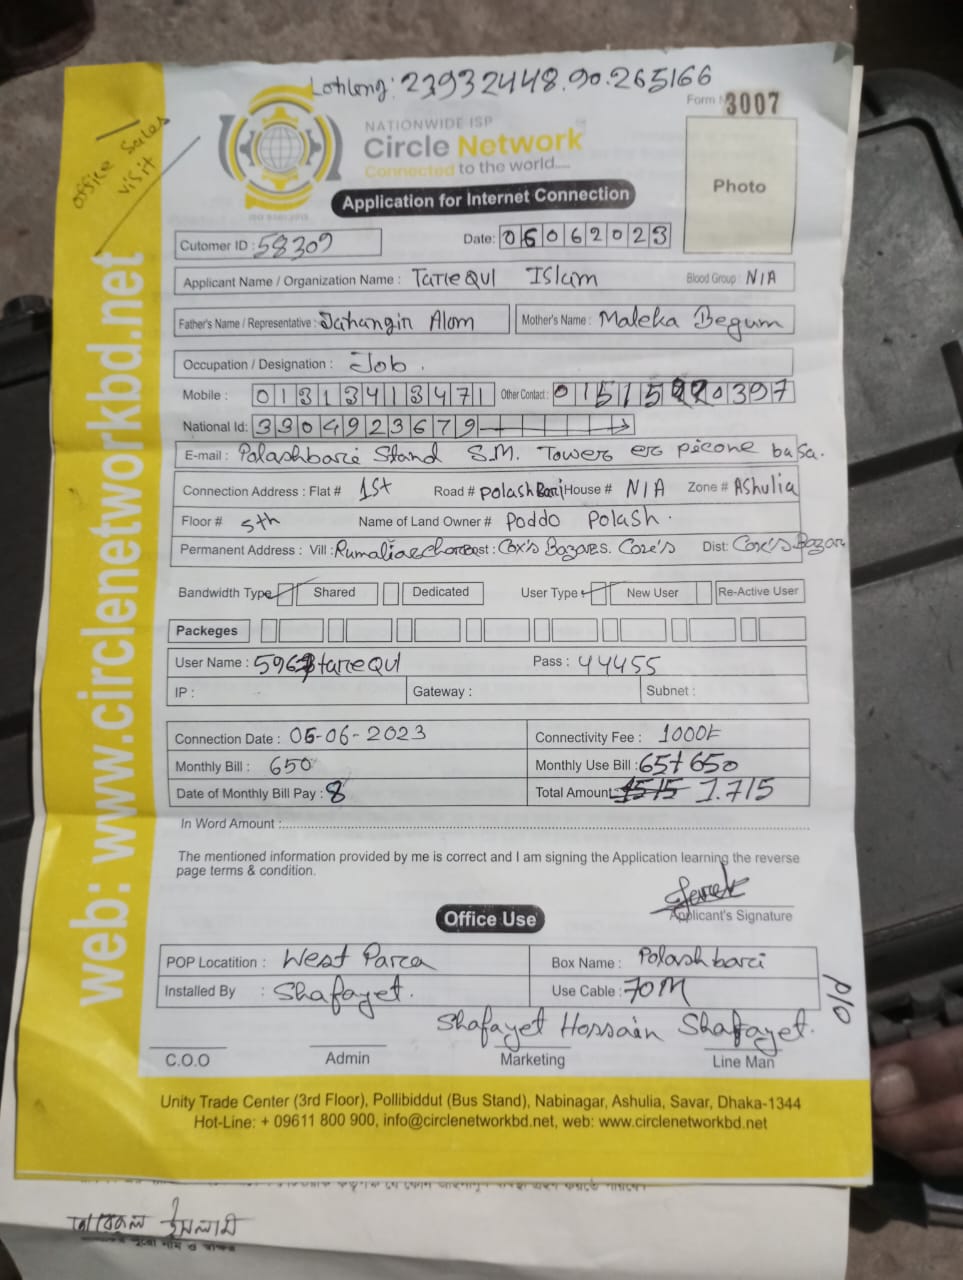 Latlong: 23932448.90.265166
Form N 3007
office Sales visit
NATIONWIDE ISP
Circle Network
Connected to the world....
ISO 9001:2015
Photo
Application for Internet Connection
Cutomer ID : 58309 Date: 05062023
Applicant Name / Organization Name : Tarequl Islam Blood Group : N/A
Father's Name / Representative : Jahangir Alom Mother's Name : Maleka Begum
Occupation / Designation : Job.
Mobile : 01313413471 Other Contact : 0151 0397
National Id: 3304923679
E-mail : Polashbari Stand S.M. Tower er picone basa.
Connection Address : Flat # 1st Road # Polashbari House # N/A Zone # Ashulia
Floor # 5th Name of Land Owner # Poddo Polash.
Permanent Address : Vill : Post : Cox's Bazar. Cox's Dist: Cox's Bazar
Bandwidth Type Shared Dedicated User Type New User Re-Active User
Packeges
User Name : tarequl Pass : 44455
IP : Gateway : Subnet :
Connection Date : 05-06-2023 Connectivity Fee : 1000
Monthly Bill : 650 Monthly Use Bill : 65+650
Date of Monthly Bill Pay : 8 Total Amount: 1515 1.715
In Word Amount :
The mentioned information provided by me is correct and I am signing the Application learning the reverse
page terms & condition.
Applicant's Signature
Office Use
POP Locatition : West Para Box Name : Polashbari
Installed By : Shafayet. Use Cable : 70M
P/O
Shafayet Hossain Shafayet.
C.O.O Admin Marketing Line Man
Unity Trade Center (3rd Floor), Pollibiddut (Bus Stand), Nabinagar, Ashulia, Savar, Dhaka-1344
Hot-Line: + 09611 800 900, info@circlenetworkbd.net, web: www.circlenetworkbd.net
web: www.circlenetworkbd.net
তারেকুল ইসলাম